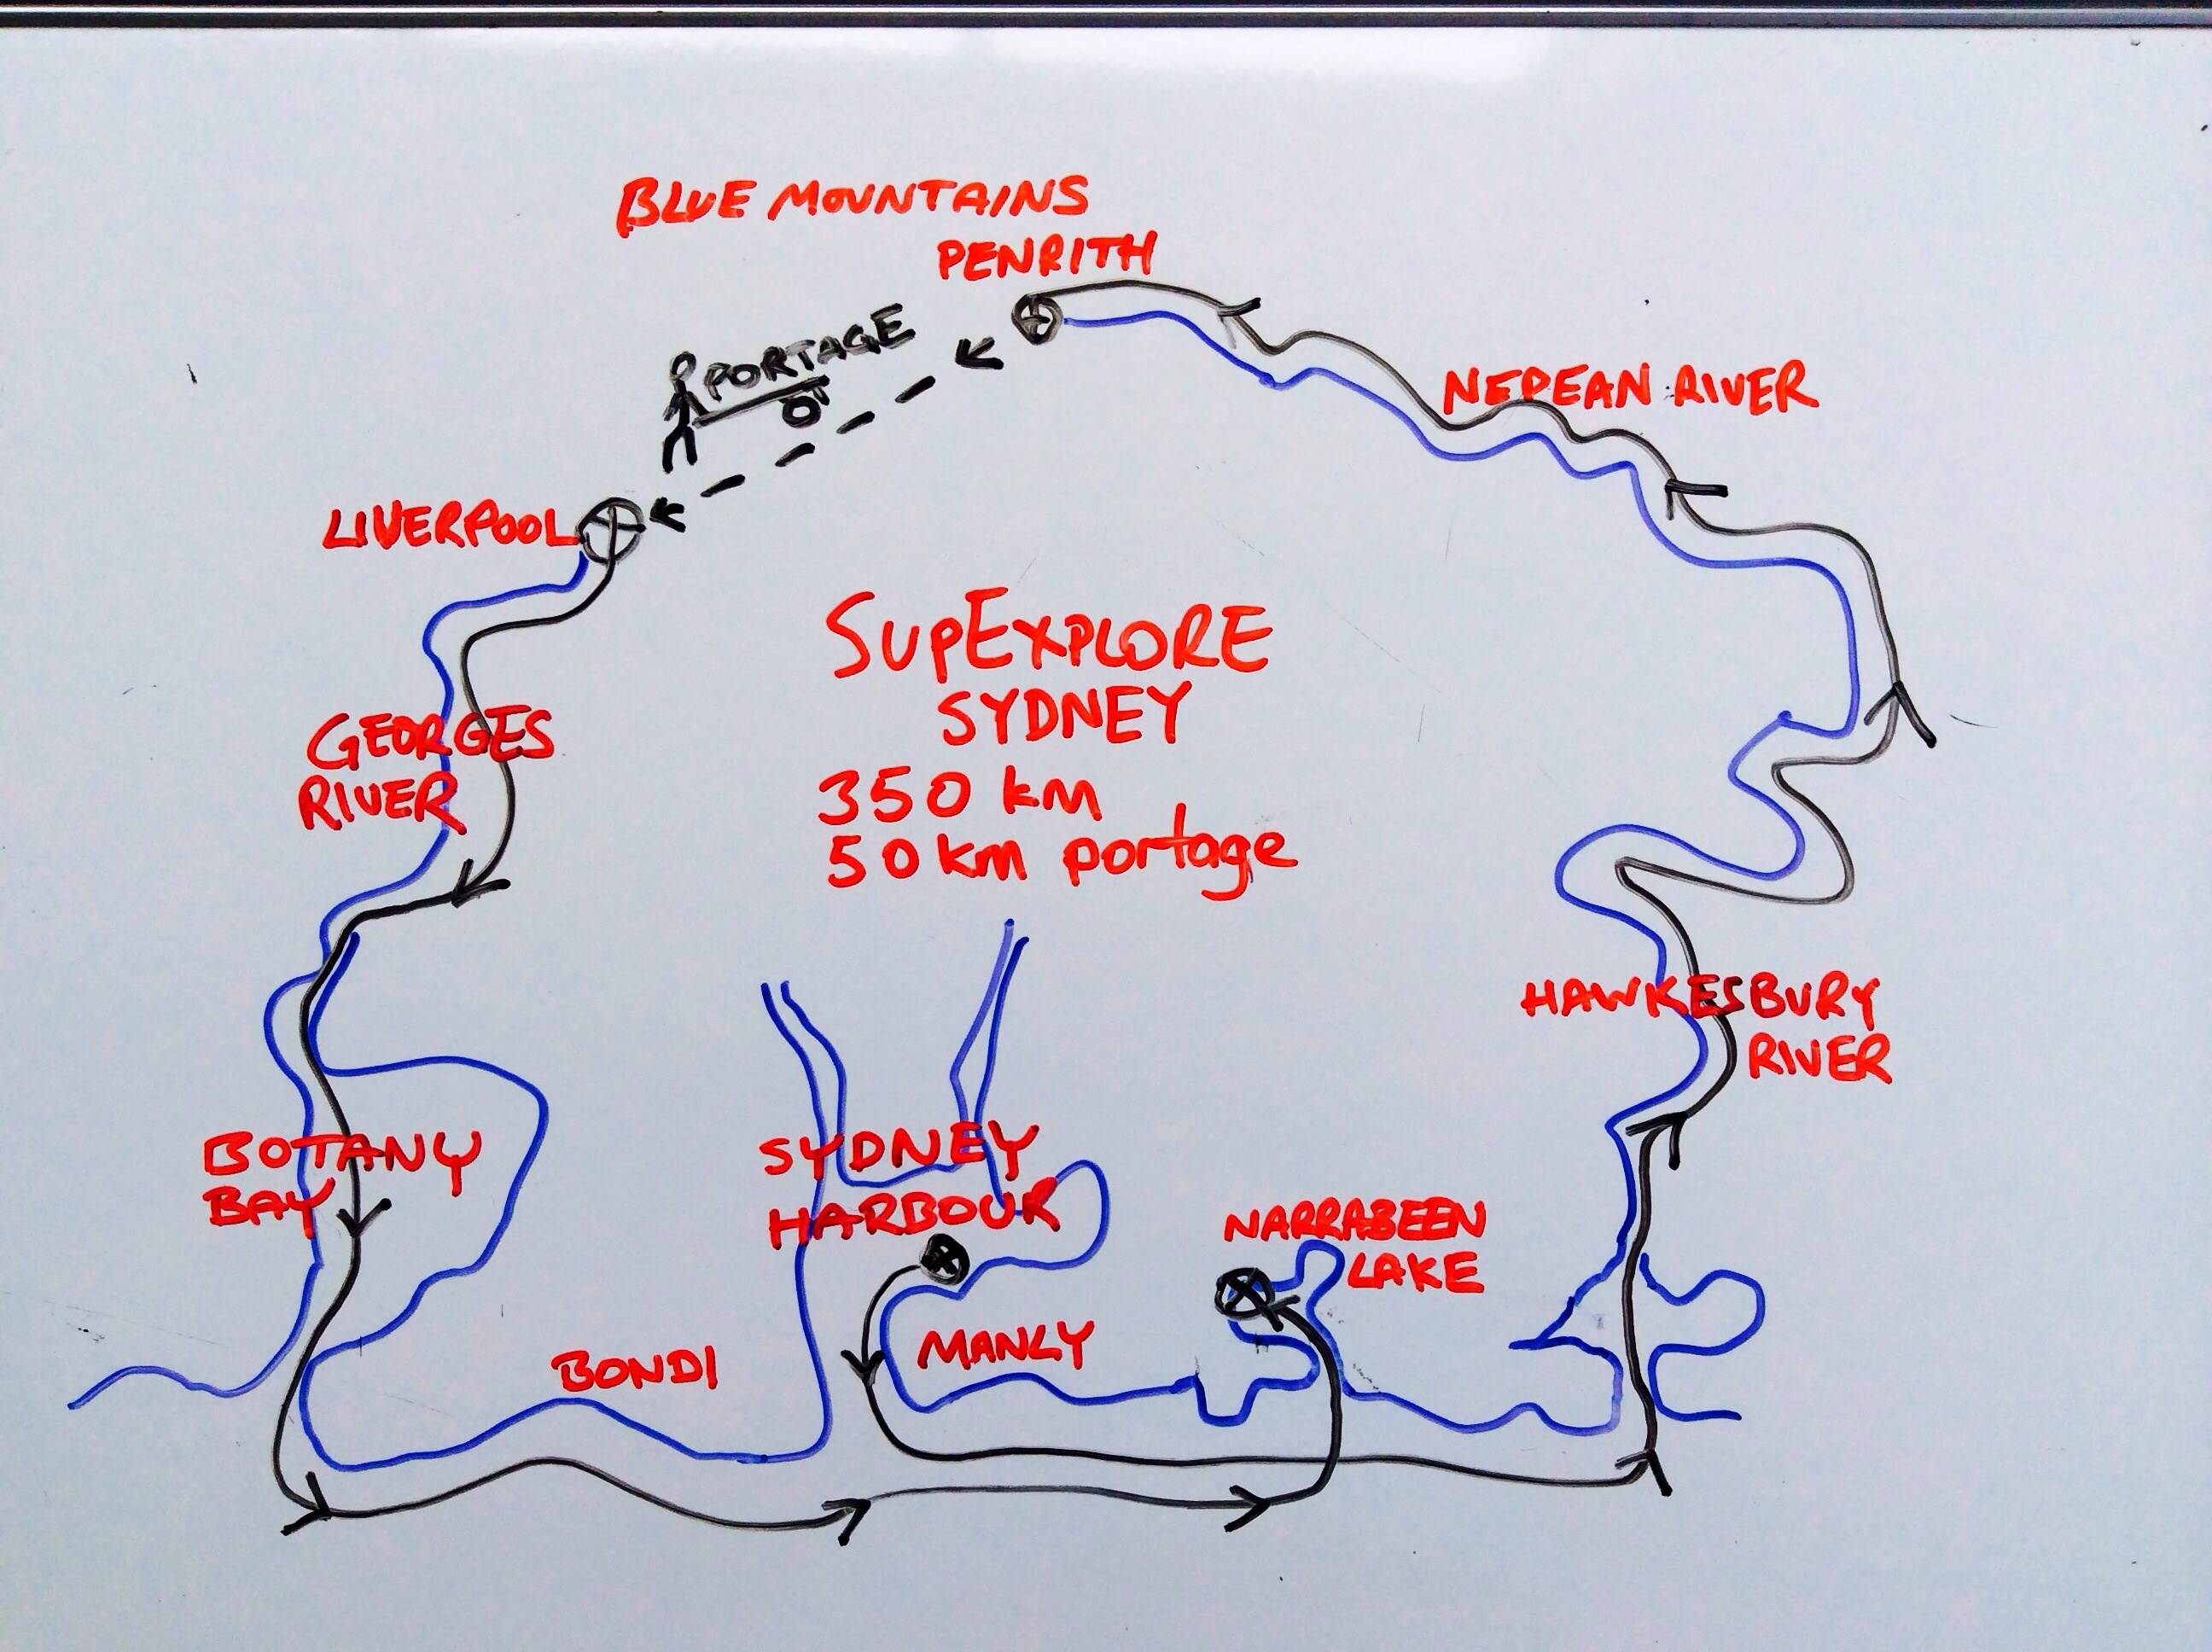 BLUE MOUNTAINS
PENRITH
PORTAGE
NEPEAN RIVER
LIVERPOOL
SUPEXPLORE
SYDNEY
350 km
50 km portage
GEORGES
RIVER
HAWKESBURY
RIVER
BOTANY
BAY
SYDNEY
HARBOUR
NARRABEEN
LAKE
MANLY
BONDI